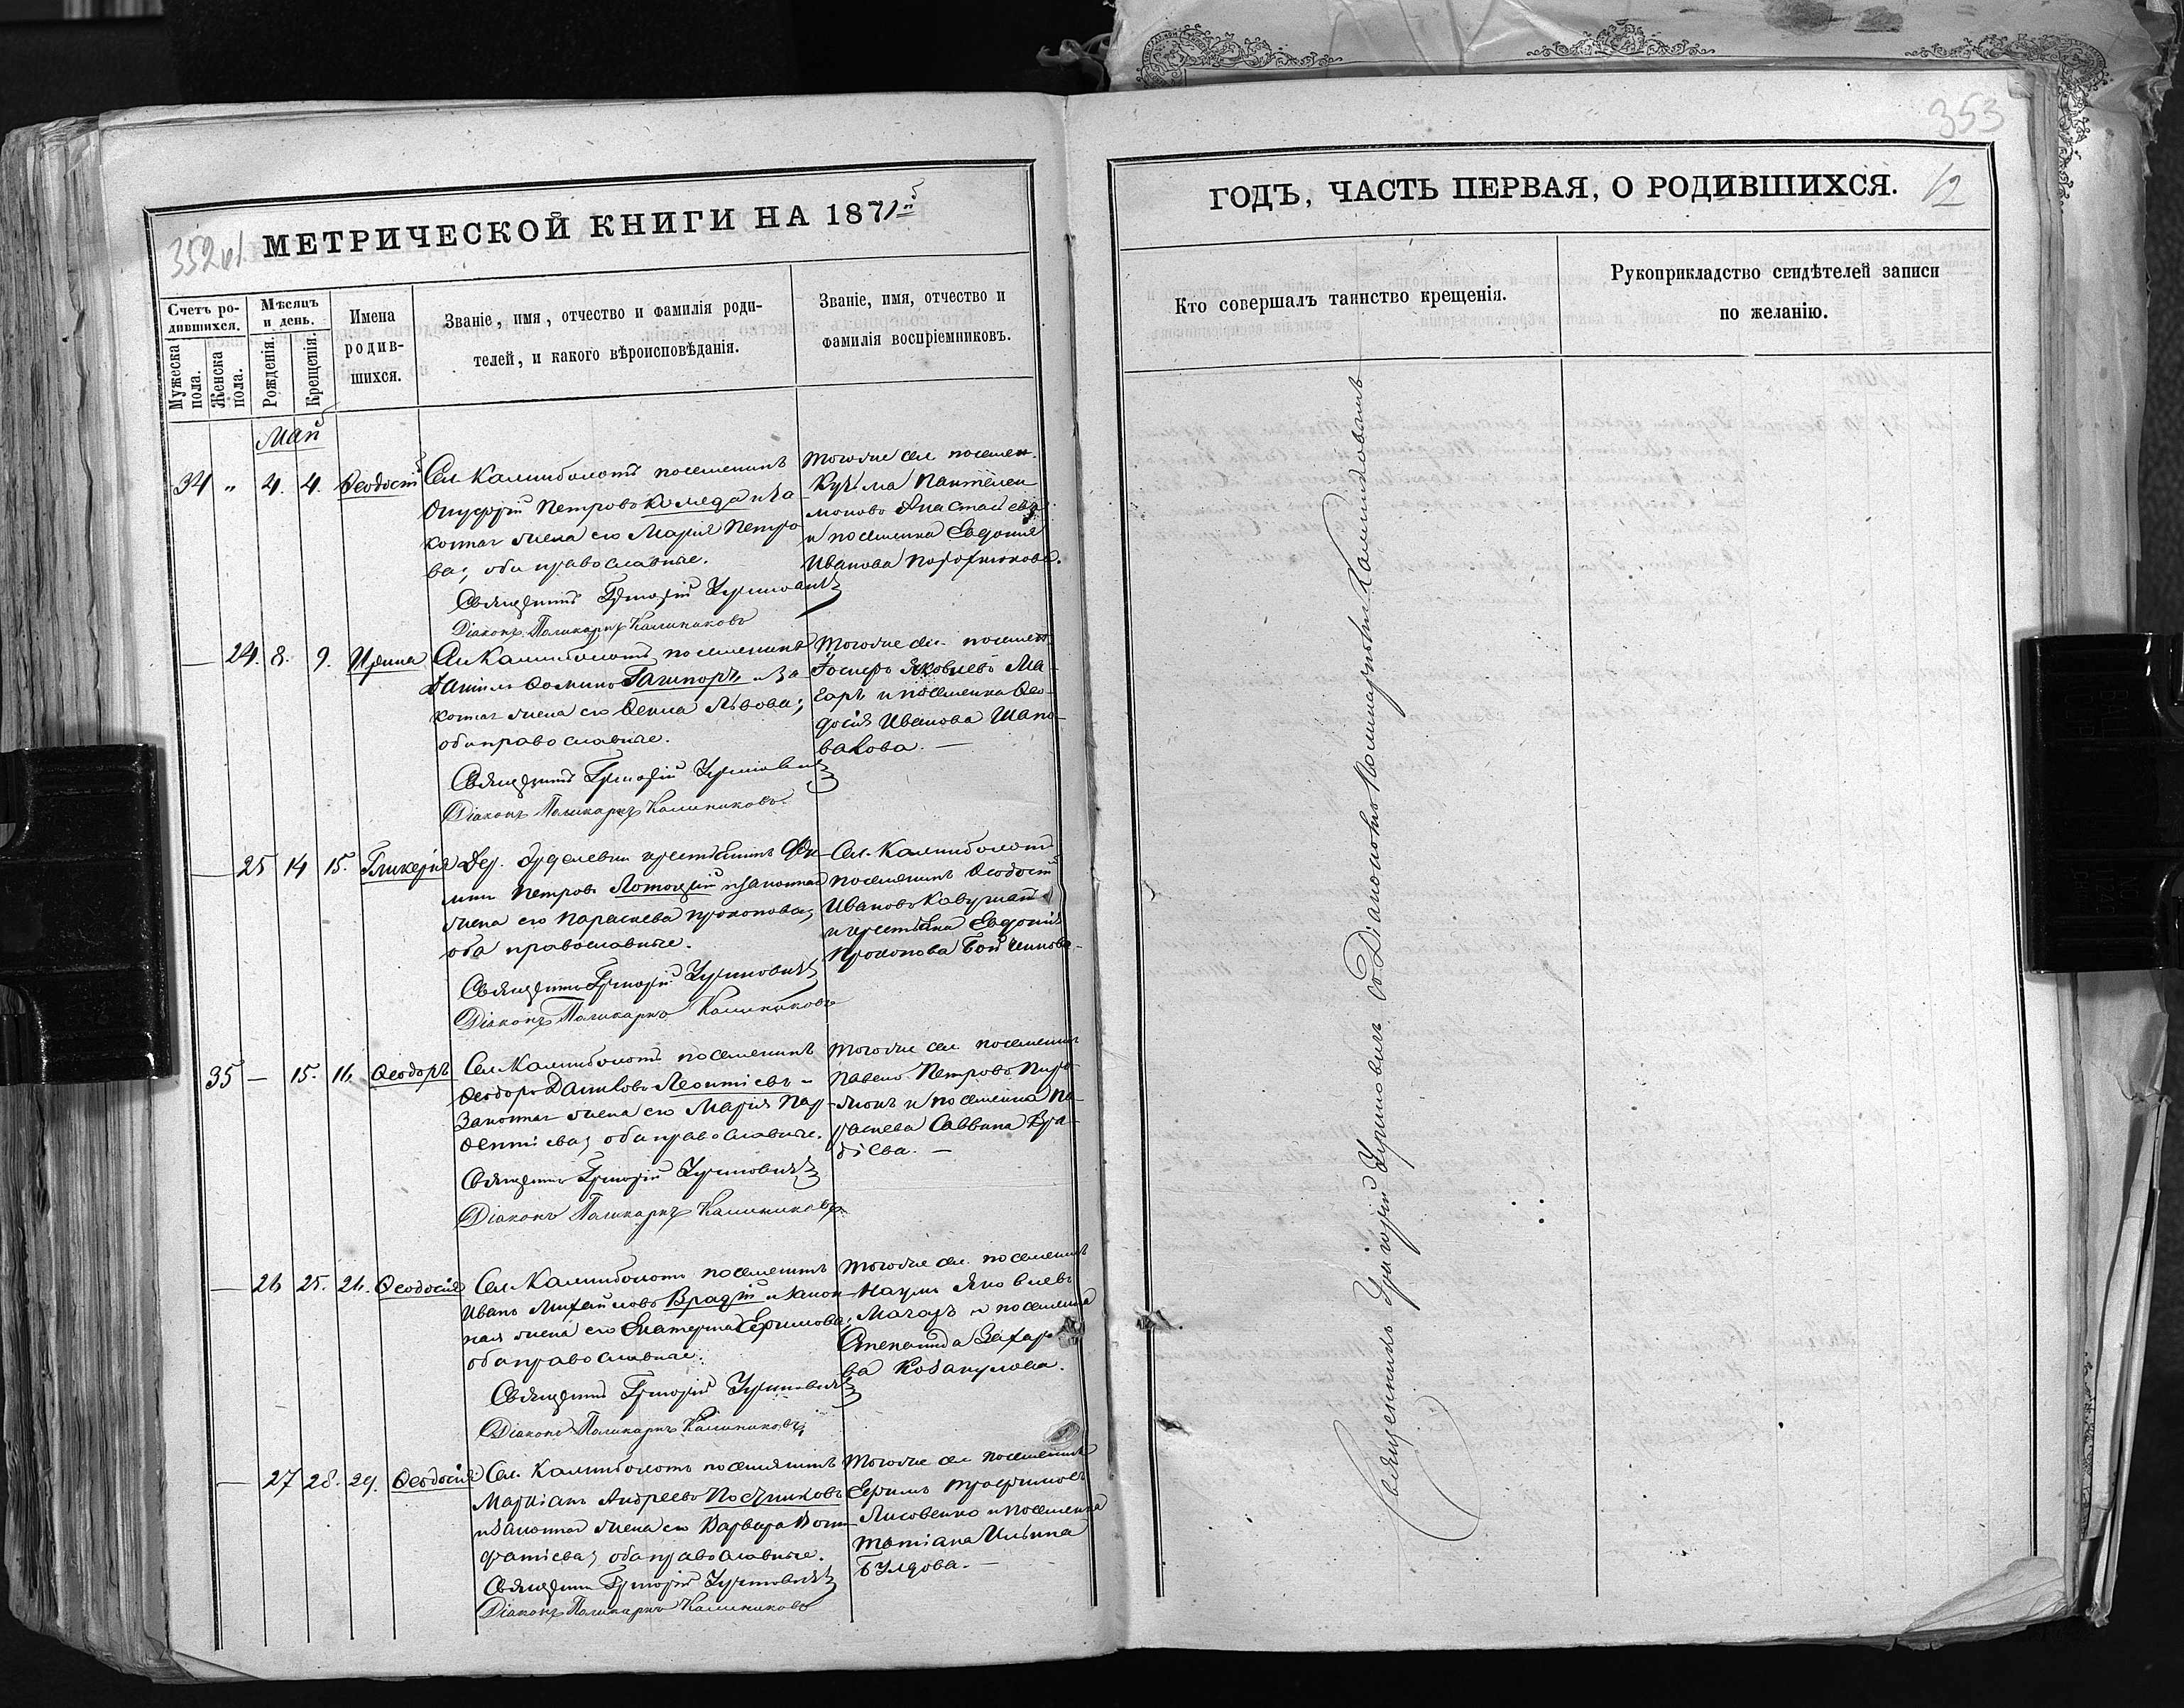 352 об.
МЕТРИЧЕСКОЙ КНИГИ НА 1871й
Счетъ ро-
дившихся.
Мужеска пола.
Женска пола.
Мѣсяцъ
и день.
Рожденія.
Крещенія.
Имена
родив-
шихся.
Званіе, имя, отчество и фамилія роди-
телей, и какого вѣроисповѣданія.
Званіе, имя, отчество и
фамилія воспріемниковъ.
Май
34 " 4. 4. Ѳеодосій
Сел. Калниболотъ поселянинъ
Онуфрій Петровъ Коляда и за
конная жена его Марія Петро
ва; оба православные.
Священникъ Григорій
Діаконъ Поликарпъ Калиниковъ
Тогоже сел. поселян.
Кузьма Пантелеи
моновъ
и поселянка Евдокія
Иванова
— 24. 8. 9. Ирина
Сел. Калниболотъ поселянинъ
Даніилъ Ѳоминъ и за
конная жена его Ѳекла Львова;
оба православные.
Священникъ Григорій
Діаконъ Поликарпъ Калиниковъ.
Тогоже сел. поселян
Іосифъ Яковлевъ Ма-
гаръ и поселянка Ѳео-
досія Иванова Шапо-
валова. —
— 25 14 15. Гликерія
Дер. крестьянинъ
Петровъ и законная
жена его Параскева Прокопова;
оба православные.
Священникъ Григорій
Діаконъ Поликарпъ Калиниковъ
Сел. Калниболотъ
поселянинъ Ѳеодосій
Ивановъ
и крестьянка Евдокія
Прокопова
35 — 15. 16. Ѳеодоръ
Сел. Калниболотъ поселянинъ
Ѳеодоръ Леонтіевъ и
законная жена его Марія Пар-
ѳентіева; оба православные.
Священникъ Григорій
Діаконъ Поликарпъ Калиниковъ
Тогоже сел. поселянинъ
Павелъ Петровъ Пиро-
жокъ и поселянка Па-
раскева Саввина Вра-
діева. —
— 26 25. 26. Ѳеодосія
Сел. Калниболотъ поселянинъ
Иванъ Михайловъ Врадій и закон-
ная жена его Екатерина Ефимова;
оба православные.
Священникъ Григорій
Діаконъ Поликарпъ Калиниковъ
Тогоже сел. поселянинъ
Наумъ Яковлевъ
Магаръ и поселянка
Степанида Захаро-
ва Козакулова.
— 27 28. 29. Ѳеодосія
Сел. Калниболотъ поселянинъ
Маркіанъ Андреевъ
и законная жена его Варвара Вони-
фатіева; оба православные.
Священникъ Григорій
Діаконъ Поликарпъ Калиниковъ
Тогоже сел поселянинъ
Ефимъ Трофимовъ
Лисовенко и поселянка
Татіана Ильина
Булдова. —
353
ГОДЪ, ЧАСТЬ ПЕРВАЯ, О РОДИВШИХСЯ.
12
Кто совершалъ таинство крещенія.
Рукоприкладство свидѣтелей записи
по желанію.
Священникъ Григорій съ Діакономъ Поликарпомъ Калиниковымъ